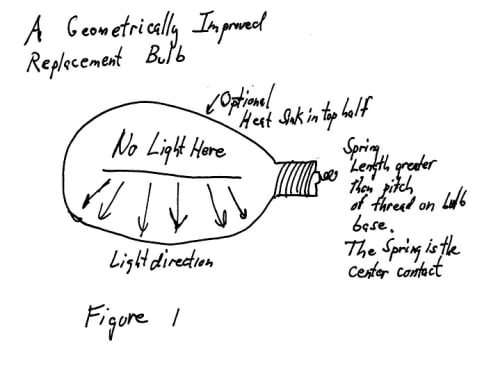 A Geometrically Improved
Replacement Bulb
Optional
Heat Sink in top half
No Light Here
Spring
Length greater
than pitch
of thread on bulb
base.
The Spring is the
center contact
Light direction
Figure 1